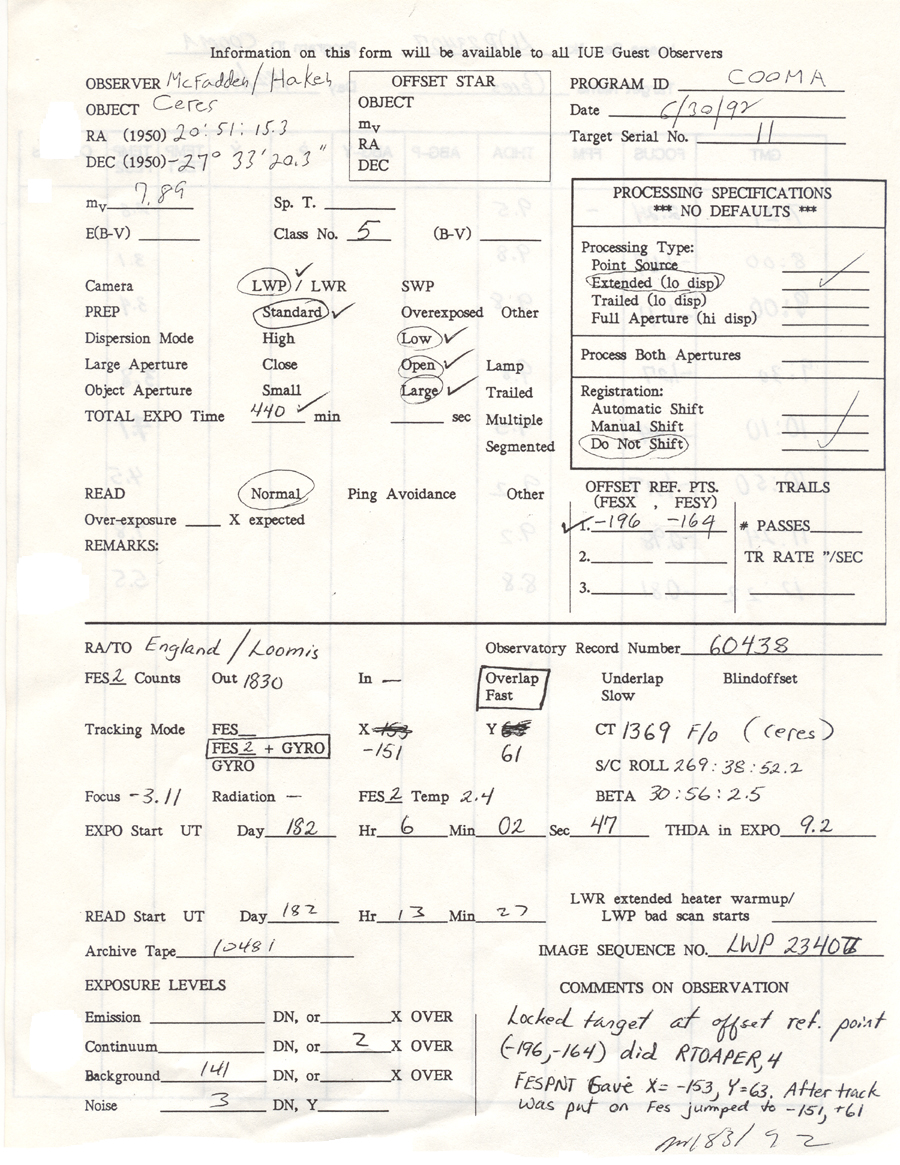 Information on this form will be available to all IUE Guest Observers
OBSERVER McFadden/Hakeh
OBJECT Ceres
RA (1950) 20:51:15.3
DEC (1950) -27° 33' 20.3"
OFFSET STAR
OBJECT
mv
RA
DEC
PROGRAM ID COOMA
Date 6/30/92
Target Serial No. 11
mv 7.89 Sp. T.
E(B-V) Class No. 5 (B-V)
PROCESSING SPECIFICATIONS
*** NO DEFAULTS ***
Processing Type:
Point Source
Extended (lo disp)
Trailed (lo disp)
Full Aperture (hi disp)
Process Both Apertures
Registration:
Automatic Shift
Manual Shift
Do Not Shift
Camera LWP / LWR SWP
PREP Standard Overexposed Other
Dispersion Mode High Low
Large Aperture Close Open Lamp
Object Aperture Small Large Trailed
TOTAL EXPO Time 440 min sec Multiple
Segmented
READ Normal Ping Avoidance Other
Over-exposure X expected
REMARKS:
OFFSET REF. PTS.
(FESX , FESY)
1. -196 -164
2.
3.
TRAILS
# PASSES
TR RATE "/SEC
RA/TO England/Loomis Observatory Record Number 60438
FES 2 Counts Out 1830 In — Overlap Underlap Blindoffset
Fast Slow
Tracking Mode FES X -153 Y CT 1369 F/o (Ceres)
FES 2 + GYRO -151 61
GYRO S/C ROLL 269:38:52.2
Focus -3.11 Radiation — FES 2 Temp 2.4 BETA 30:56:2.5
EXPO Start UT Day 182 Hr 6 Min 02 Sec 47 THDA in EXPO 9.2
LWR extended heater warmup/
READ Start UT Day 182 Hr 13 Min 27 LWP bad scan starts
Archive Tape 10481 IMAGE SEQUENCE NO. LWP 2340
EXPOSURE LEVELS
Emission DN, or X OVER
Continuum DN, or 2 X OVER
Background 141 DN, or X OVER
Noise 3 DN, Y
COMMENTS ON OBSERVATION
Locked target at offset ref. point
(-196,-164) did RTOAPER,4
FESPNT Gave X= -153, Y=63. After track
was put on Fes jumped to -151, +61